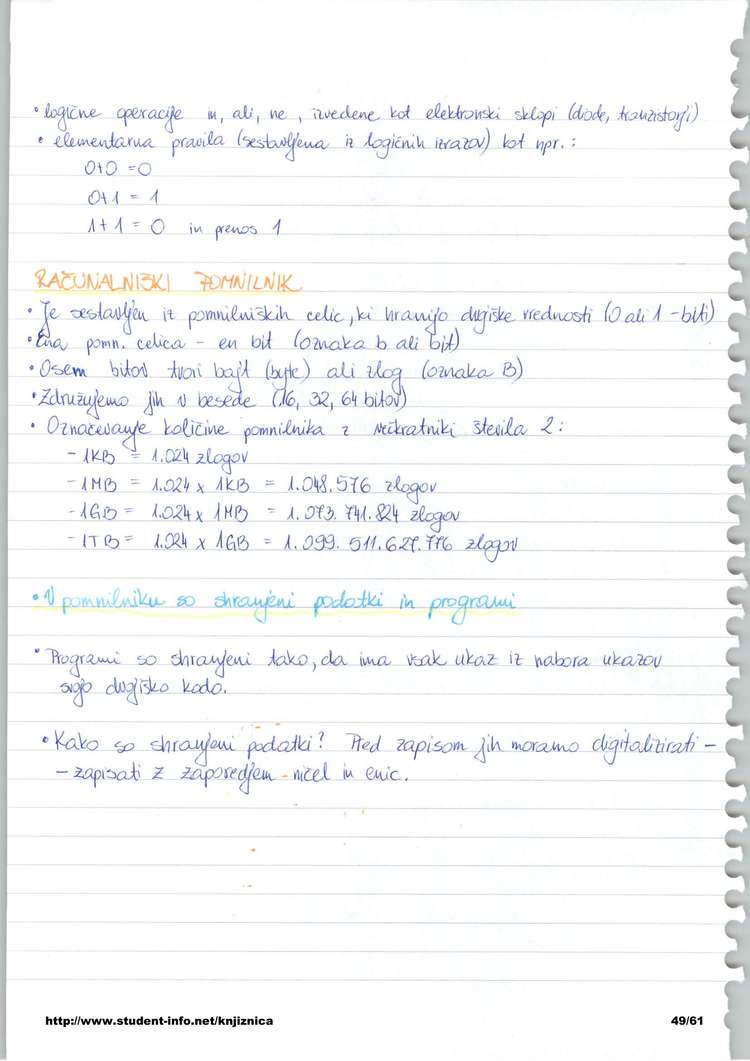 • logične operacije in, ali, ne, izvedene kot elektronski sklopi (diode, tranzistorji)
• elementarna pravila (sestavljena iz logičnih izrazov) kot npr.:
0+0=0
0+1=1
1+1=0 in prenos 1
RAČUNALNIŠKI POMNILNIK
• Je sestavljen iz pomnilniških celic, ki hranijo dvojiške vrednosti (0 ali 1 - biti)
• Ena pomn. celica - en bit (oznaka b ali bit)
• Osem bitov tvori bajt (byte) ali zlog (oznaka B)
• Združujemo jih v besede (16, 32, 64 bitov)
• Označevanje količine pomnilnika z večkratniki števila 2:
- 1KB = 1.024 zlogov
- 1MB = 1.024 x 1KB = 1.048.576 zlogov
- 1GB = 1.024 x 1MB = 1.073.741.824 zlogov
- 1TB = 1.024 x 1GB = 1.099.511.627.776 zlogov
• V pomnilniku so shranjeni podatki in programi
• Programi so shranjeni tako, da ima vsak ukaz iz nabora ukazov
svojo dvojiško kodo.
• Kako so shranjeni podatki? Pred zapisom jih moramo digitalizirati -
- zapisati z zaporedjem ničel in enic.
http://www.student-info.net/knjiznica 49/61